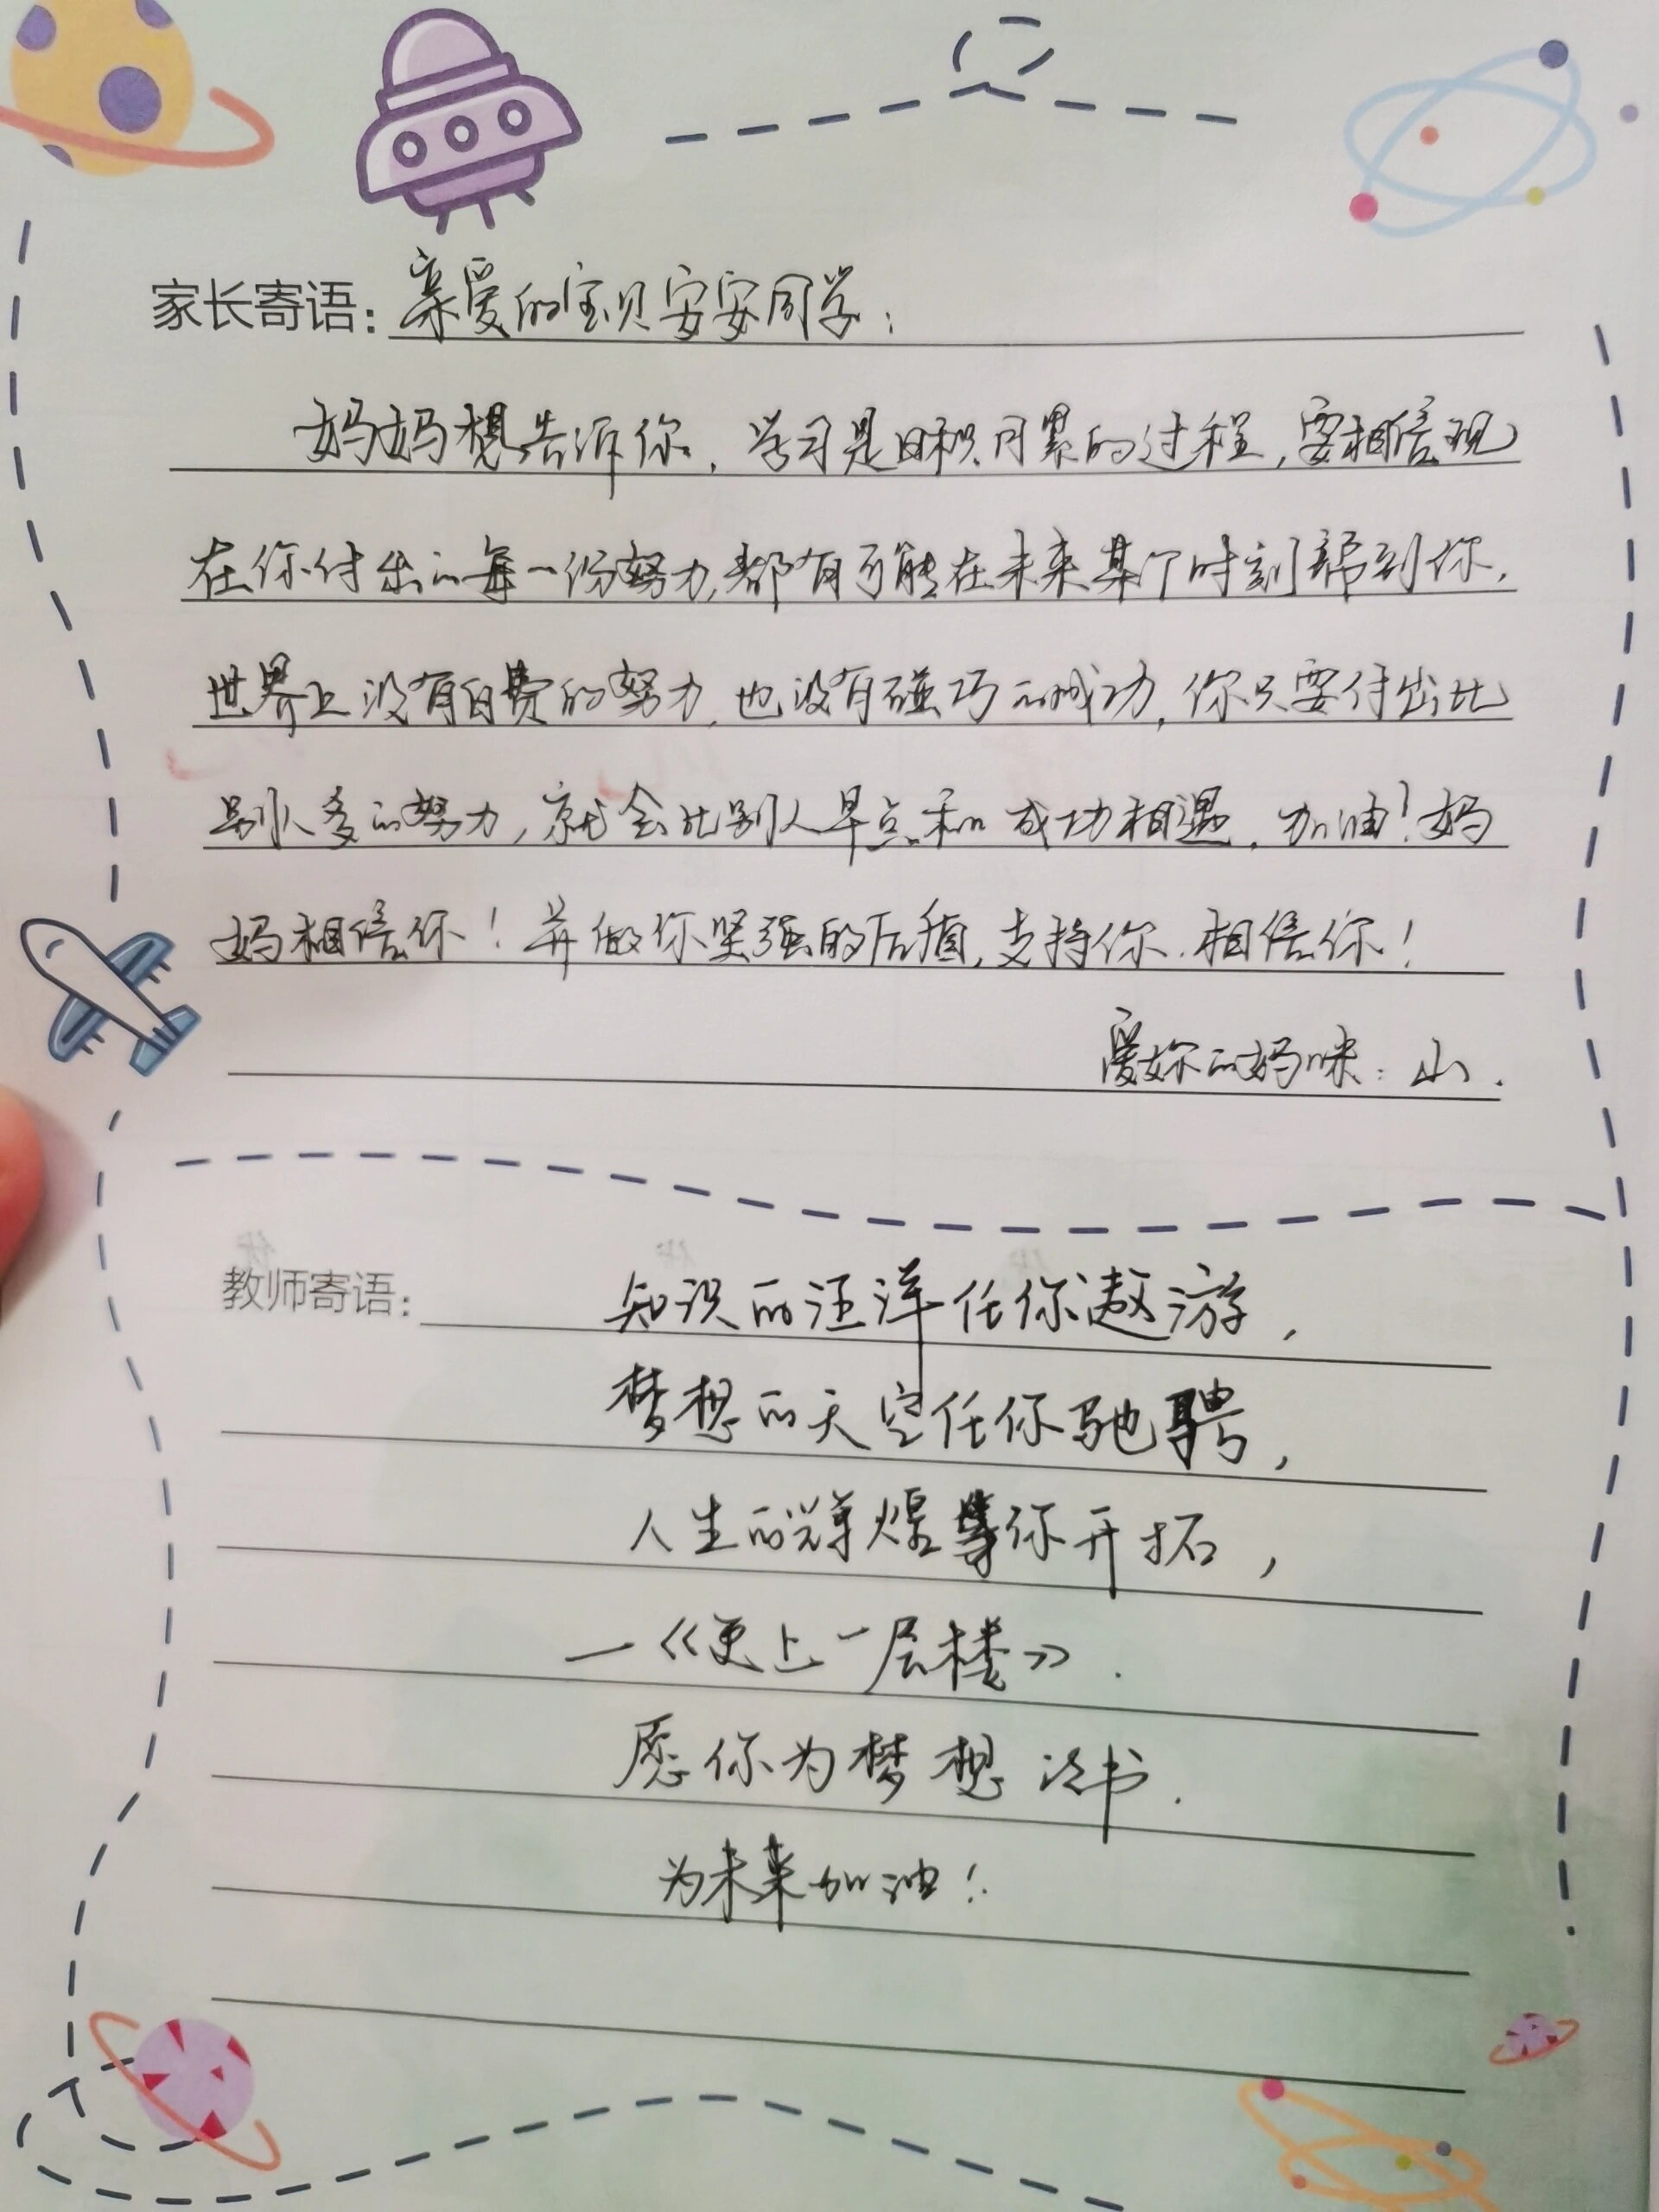 家长寄语：亲爱的宝贝安安同学：
妈妈想告诉你，学习是日积月累的过程，要相信现
在你付出的每一份努力，都有可能在未来某个时刻帮到你，
世界上没有白费的努力，也没有碰巧的成功，你只要付出比
别人多的努力，就会比别人早点和成功相遇，加油！妈
妈相信你！并做你坚强的后盾，支持你，相信你！
爱你的妈咪：山．
教师寄语：知识的汪洋任你遨游，
梦想的天空任你驰骋，
人生的辉煌等你开拓，
—《更上一层楼》．
愿你为梦想读书．
为未来加油！